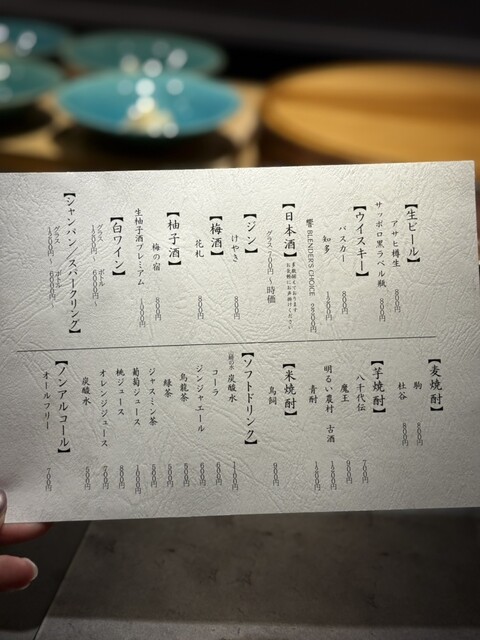 【生ビール】
アサヒ樽生 800円
サッポロ黒ラベル瓶 800円
【ウイスキー】
バスカー 800円
知多 1200円
響 BLENDER'S CHOICE 2800円
【日本酒】
多数揃えております
お気軽にお声掛けください
グラス 700円〜時価
【ジン】
けやき 800円
【梅酒】
花札 800円
【柚子酒】
梅の宿 800円
生柚子酒プレミアム 1000円
【白ワイン】
グラス 1000円〜 ボトル 6000円〜
【シャンパン/スパークリング】
グラス 1500円〜 ボトル 6000円〜
【麦焼酎】
駒 800円
杜谷 800円
【芋焼酎】
八千代伝 700円
魔王 900円
明るい農村 古酒 1200円
青酎 1200円
【米焼酎】
鳥飼 900円
【ソフトドリンク】
炭酸水 1100円
コーラ 600円
ジンジャエール 600円
烏龍茶 500円
緑茶 500円
ジャスミン茶 500円
葡萄ジュース 1000円
桃ジュース 800円
オレンジジュース 700円
炭酸水 500円
【ノンアルコール】
オールフリー 700円